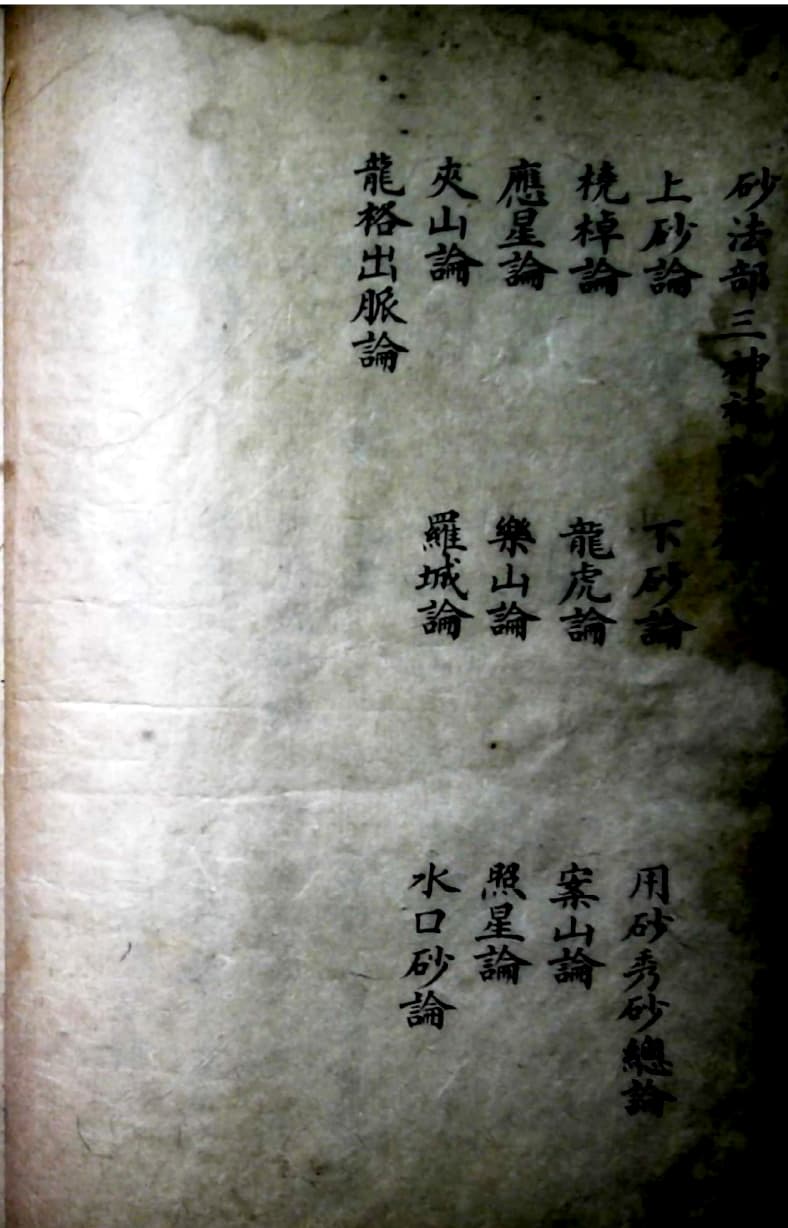 砂法部三神
上砂論 下砂論 用砂秀砂總論
橈棹論 龍虎論 案山論
應星論 樂山論 照星論
夾山論 羅城論 水口砂論
龍格出脈論